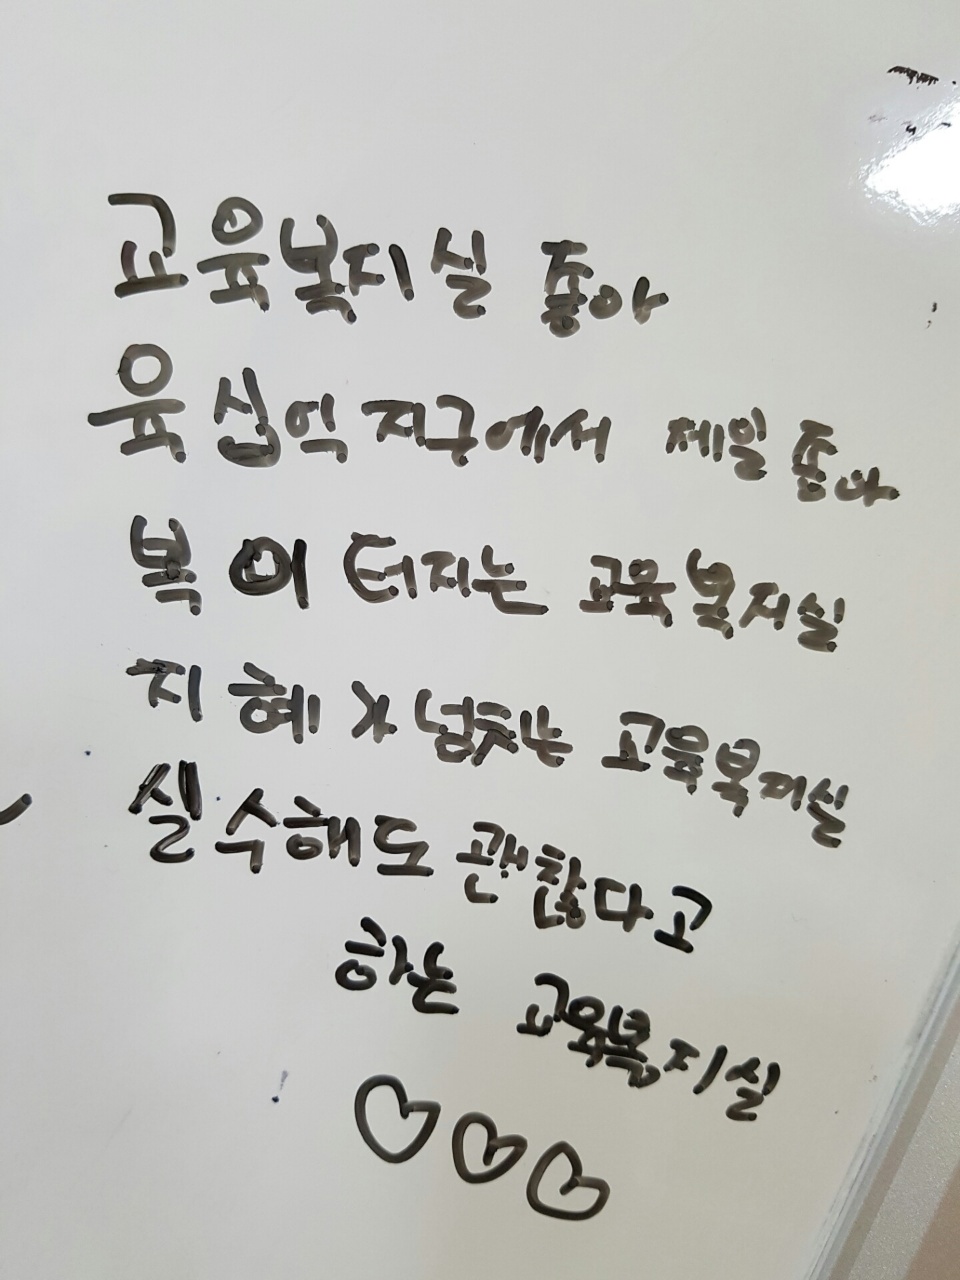 교육복지실 좋아
육십억 지구에서 제일 좋아
복이 터지는 교육복지실
지혜가 넘치는 교육복지실
실수해도 괜찮다고
하는 교육복지실